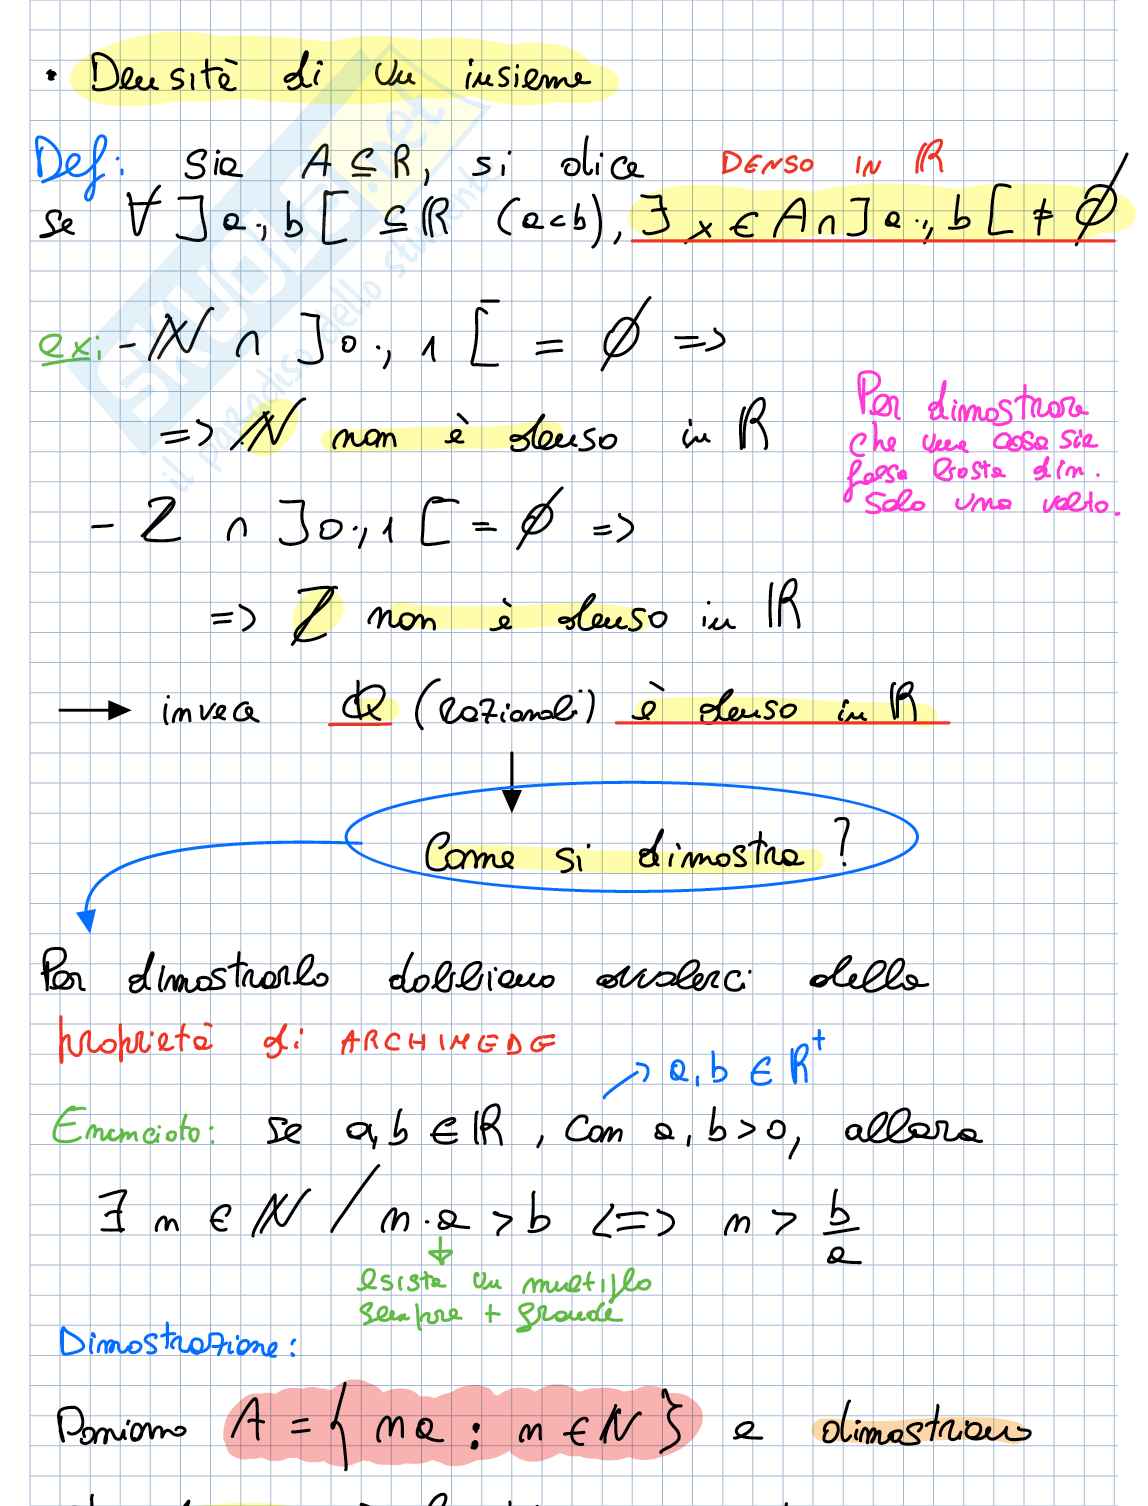 • Densità di un insieme
Def: Sia A ⊆ R, si dice DENSO IN ℝ
se ∀ ]a;b[ ⊆ ℝ (a<b), ∃ x ∈ A ∩ ]a;b[ ≠ ∅
ex: - ℕ ∩ ]0;1[ = ∅ =>
=> ℕ non è denso in ℝ
Per dimostrare
che una cosa sia
falsa basta dim.
solo una volta.
- Z ∩ ]0;1[ = ∅ =>
=> ℤ non è denso in ℝ
→ invece ℚ (razionali) è denso in ℝ
Come si dimostra?
Per dimostrarlo dobbiamo avvalerci della
proprietà di ARCHIMEDE
→ a, b ∈ ℝ⁺
Enunciato: se a, b ∈ ℝ, con a, b > 0, allora
∃ n ∈ ℕ / n·a > b <=> n > b/a
esiste un multiplo
sempre + grande
Dimostrazione:
Poniamo A = { na : n ∈ ℕ } e dimostriamo
skuola.net
il paradiso dello studente